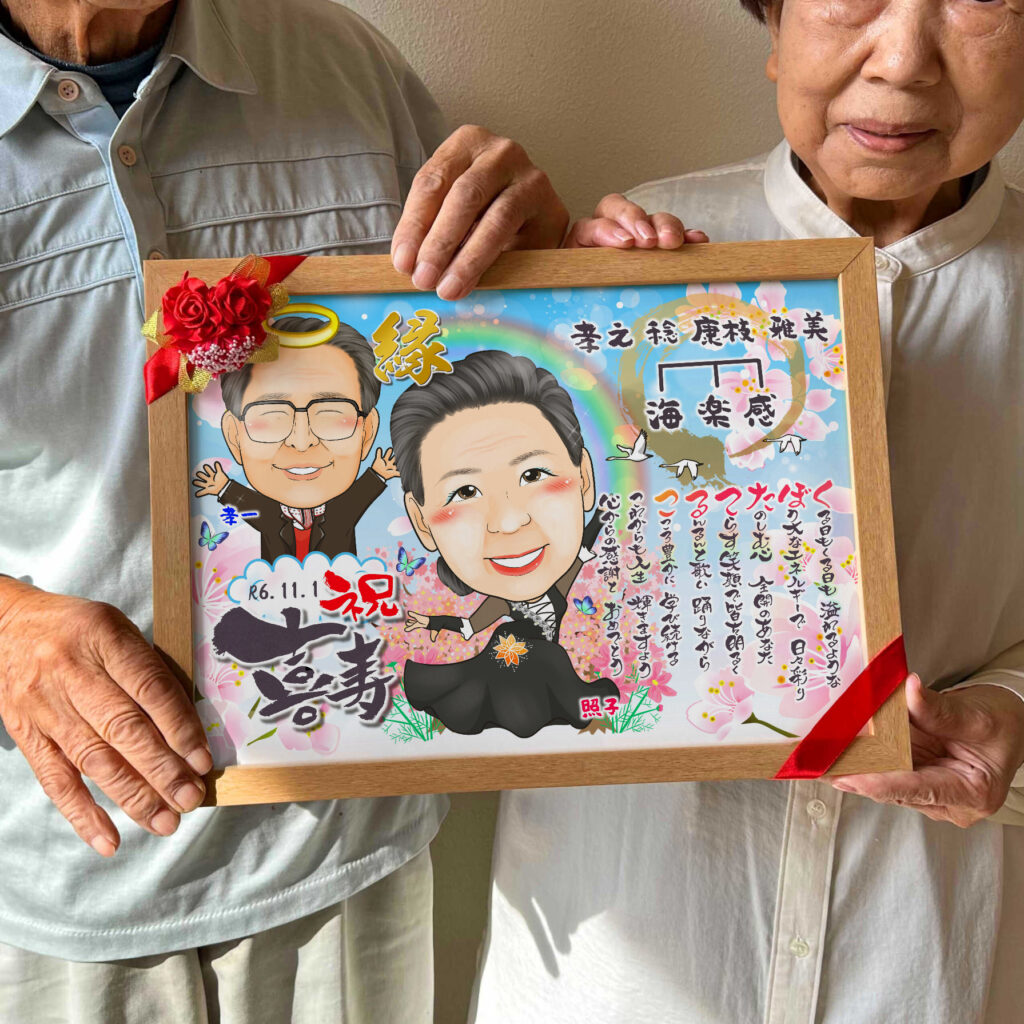 縁
孝之 稔 康枝 雅美
海 楽 感
くる日もくる日も 溢れるような
ぼう大なエネルギーで 日々彩り
たのしむ心 全開のあなた
てらす笑顔で皆が明るく
るんるんと歌い 踊りながら
こころ豊かに 学び続ける
これからも人生 輝きますよう
心からの感謝と おめでとう
孝一
R6.11.1
祝
喜寿
照子